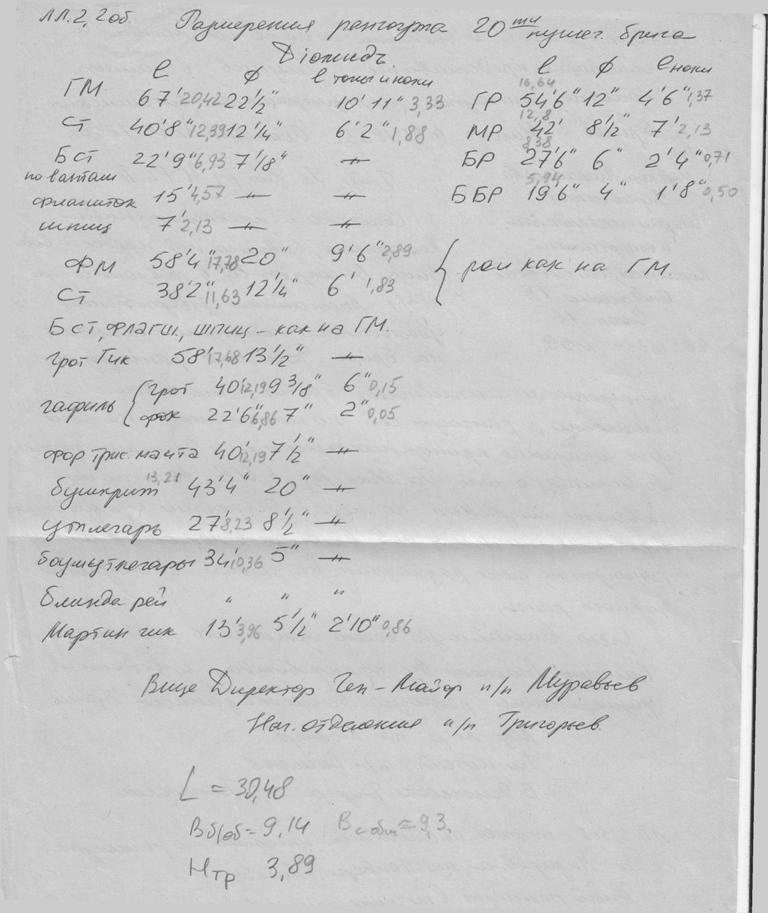 ЛЛ.2, 2об. Размерения рангоута 20ти пушеч. брига
Діомидъ
l ф l топы и ноки l ф l ноки
ГМ 67' 20,42 22 1/2" 10' 11" 3,33 ГР 16,64 54'6" 12" 4'6" 1,37
СТ 40'8" 12,39 12 1/4" 6' 2" 1,88 МР 12,8 42' 8 1/2" 7' 2,13
БСТ 22'9" 6,93 7 1/8" –//– БР 8,38 27'6" 6" 2'4" 0,71
по вантам
флагшток 15' 4,57 –//– –//– ББР 5,94 19'6" 4" 1'8" 0,50
шпиц 7' 2,13 –//– –//–
ФМ 58'4" 17,78 20" 9'6" 2,89 { реи как на ГМ.
СТ 38'2" 11,63 12 1/4" 6' 1,83
БСТ, флагш, шпиц – как на ГМ.
грот Гик 58' 17,68 13 1/2" –//–
гафиль { грот 40' 12,19 9 3/8" 6" 0,15
фок 22'6" 6,86 7" 2" 0,05
фор трис. мачта 40' 12,19 7 1/2" –//–
бушприт 13,21 43'4" 20" –//–
утлегарь 27' 8,23 8 1/2" –//–
боумутлегарь 34' 10,36 5" –//–
блинда рей " " "
Мартин гик 13' 3,96 5 1/2" 2'10" 0,86
Вице Директор Ген-Майор п/п Муравьев
Нач. отделения п/п Григорьев.
L = 30,48
Вб/об = 9,14 Вс обш = 9,3.
Нтр 3,89